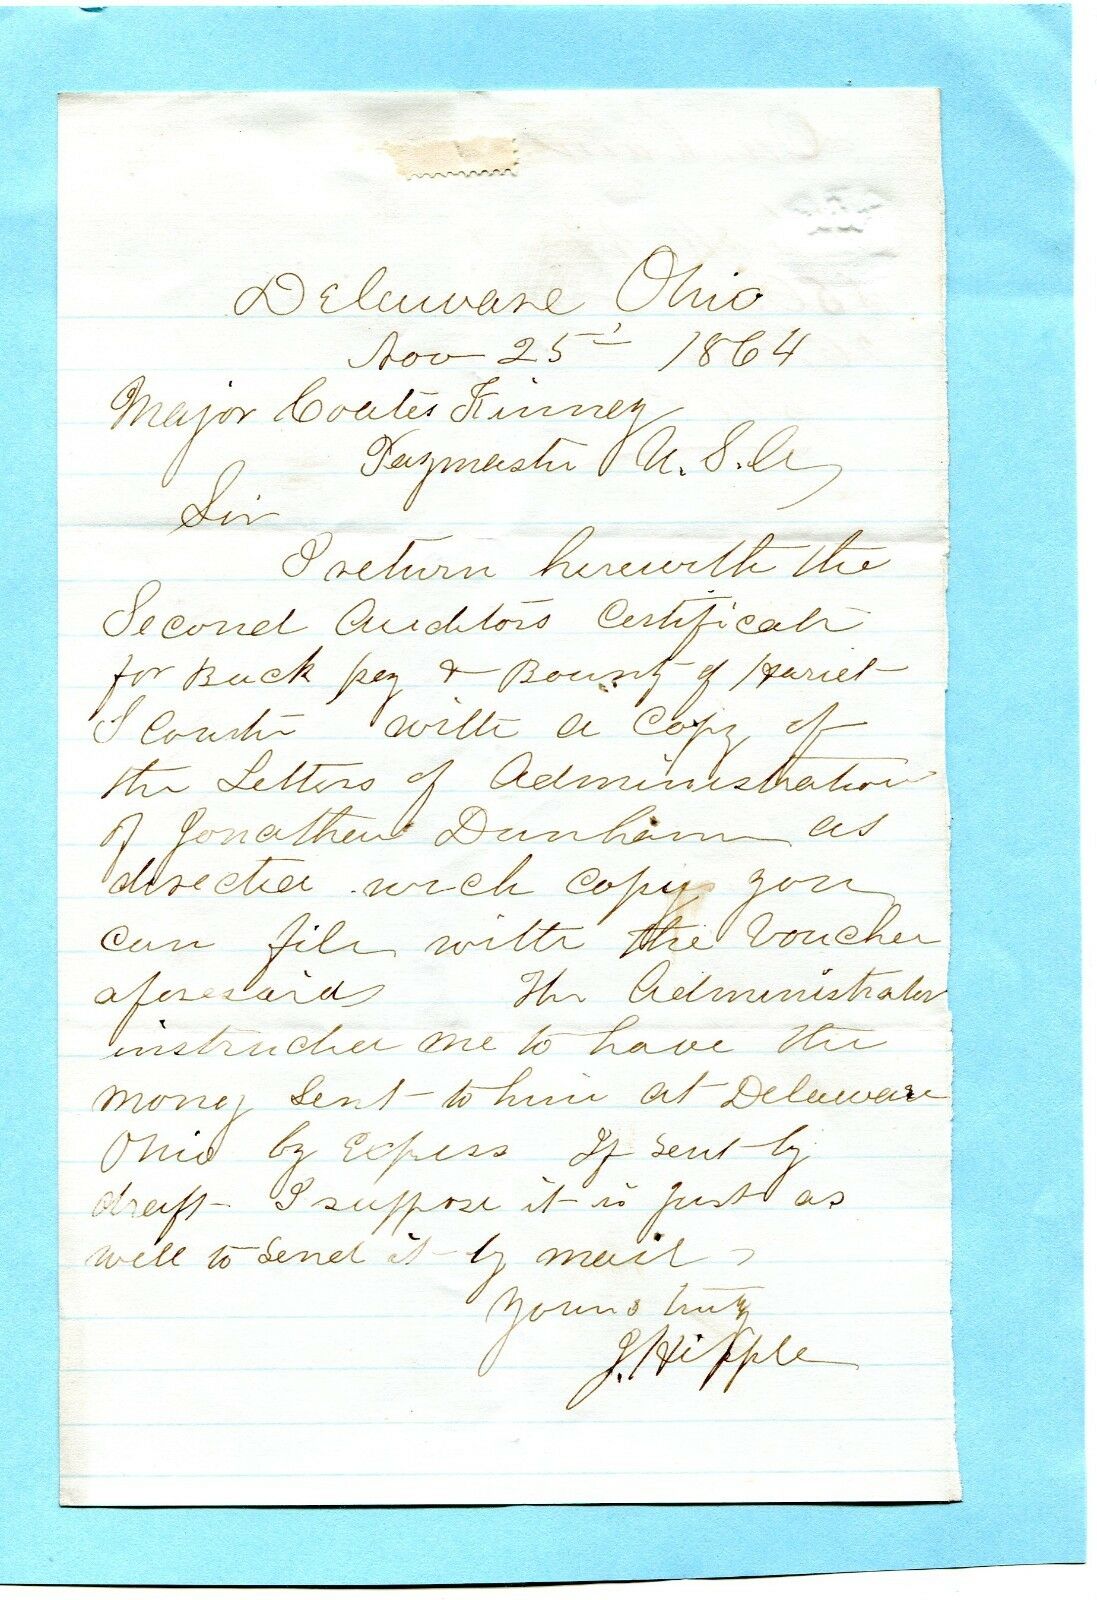 Delaware Ohio
Nov 25' 1864
Major Coates Kinney
Paymaster U. S. A,
Sir
I return herewith the
Second Auditors Certificate
for Back pay & Bounty of Hariet
with a Copy of
the Letters of Administration
of Jonathan Dunham as
directed wich copy you
can file with the Voucher
aforesaid The Administrator
instructed me to have the
money sent to him at Delaware
Ohio by Express If sent by
draft I suppose it is just as
well to send it by mail
Yours truly
J. Hipple